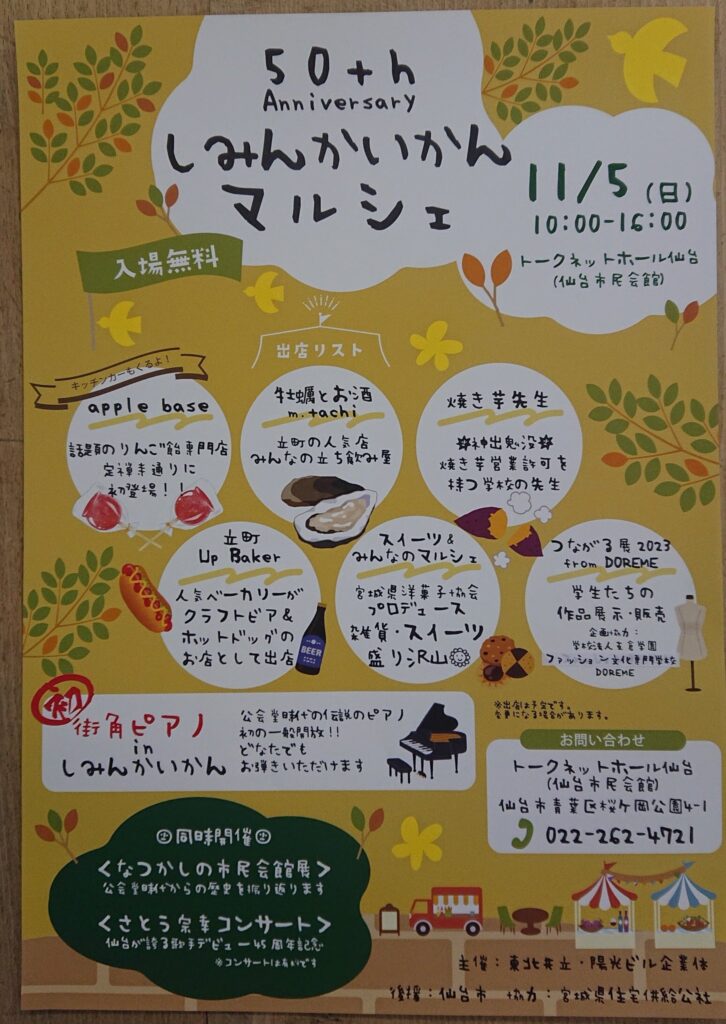 50th
Anniversary
しみんかいかん
マルシェ
11/5(日)
10:00-16:00
トークネットホール仙台
(仙台市民会館)
入場無料
出店リスト
キッチンカーもくるよ!
apple base
話題のりんご飴専門店
定禅寺通りに
初登場!!
牡蠣とお酒
m.tachi
立町の人気店
みんなの立ち飲み屋
焼き芋先生
神出鬼没
焼き芋営業許可を
持つ学校の先生
立町
Up Baker
人気ベーカリーが
クラフトビア&
ホットドッグの
お店として出店
BEER
スイーツ&
みんなのマルシェ
宮城県洋菓子協会
プロデュース
雑貨・スイーツ
盛り沢山
つながる展2023
from DOREME
学生たちの
作品展示・販売
企画協力:
ファッション文化専門学校
DOREME
※出店は予定です。
変更になる場合があります。
初
街角ピアノ
in
しみんかいかん
公会堂時代の伝説のピアノ
初の一般開放!!
どなたでも
お弾きいただけます
お問い合わせ
トークネットホール仙台
(仙台市民会館)
仙台市青葉区桜ケ岡公園4-1
022-262-4721
同時開催
<なつかしの市民会館展>
公会堂時代からの歴史を振り返ります
<さとう宗幸コンサート>
仙台が誇る歌手デビュー45周年記念
※コンサートは有料です
主催:東北共立・陽光ビル企業体
後援:仙台市 協力:宮城県住宅供給公社